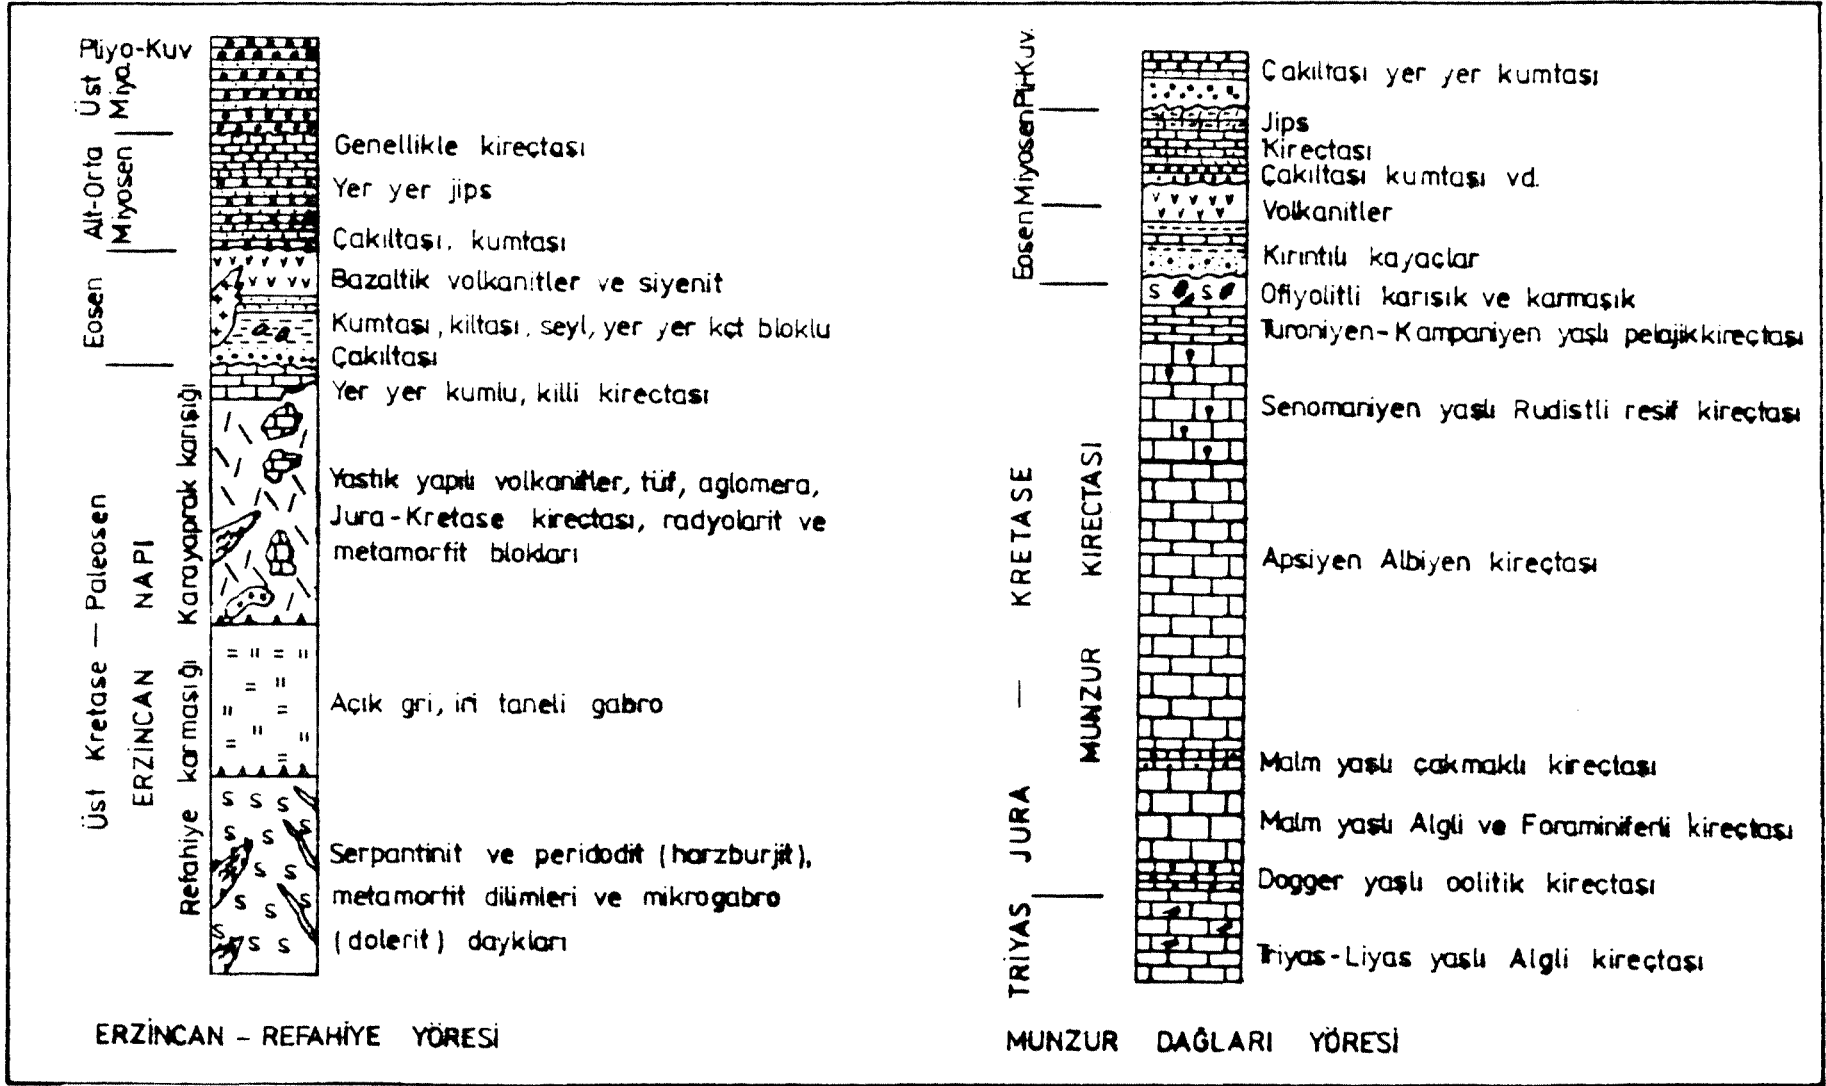 Pliyo-Kuv
Üst
Miya.
Alt-Orta
Miyosen
Eosen
Üst Kretase — Paleosen
ERZİNCAN NAPI
Karayaprak karışığı
Refahiye karmaşığı
Genellikle kireçtaşı
Yer yer jips
Çakıltaşı, kumtaşı
Bazaltik volkanitler ve siyenit
Kumtaşı, kiltaşı, şeyl, yer yer kçt bloklu
Çakıltaşı
Yer yer kumlu, killi kireçtaşı
Yastık yapılı volkanitler, tüf, aglomera,
Jura-Kretase kireçtaşı, radyolarit ve
metamorfit blokları
Açık gri, iri taneli gabro
Serpantinit ve peridodit (harzburjit),
metamorfit dilimleri ve mikrogabro
(dolerit) daykları
ERZİNCAN – REFAHİYE YÖRESİ
Pli-Kuv.
Miyosen
Eosen
KRETASE
—
JURA
TRİYAS
MUNZUR KIREÇTAŞI
Çakıltaşı yer yer kumtaşı
Jips
Kireçtaşı
Çakıltaşı kumtaşı vd.
Volkanitler
Kırıntılı kayaçlar
Ofiyolitli karışık ve karmaşık
Turoniyen-Kampaniyen yaşlı pelajik kireçtaşı
Senomaniyen yaşlı Rudistli resif kireçtaşı
Apsiyen Albiyen kireçtaşı
Malm yaşlı çakmaklı kireçtaşı
Malm yaşlı Algli ve Foraminiferli kireçtaşı
Dogger yaşlı oolitik kireçtaşı
Triyas-Liyas yaşlı Algli kireçtaşı
MUNZUR DAĞLARI YÖRESİ